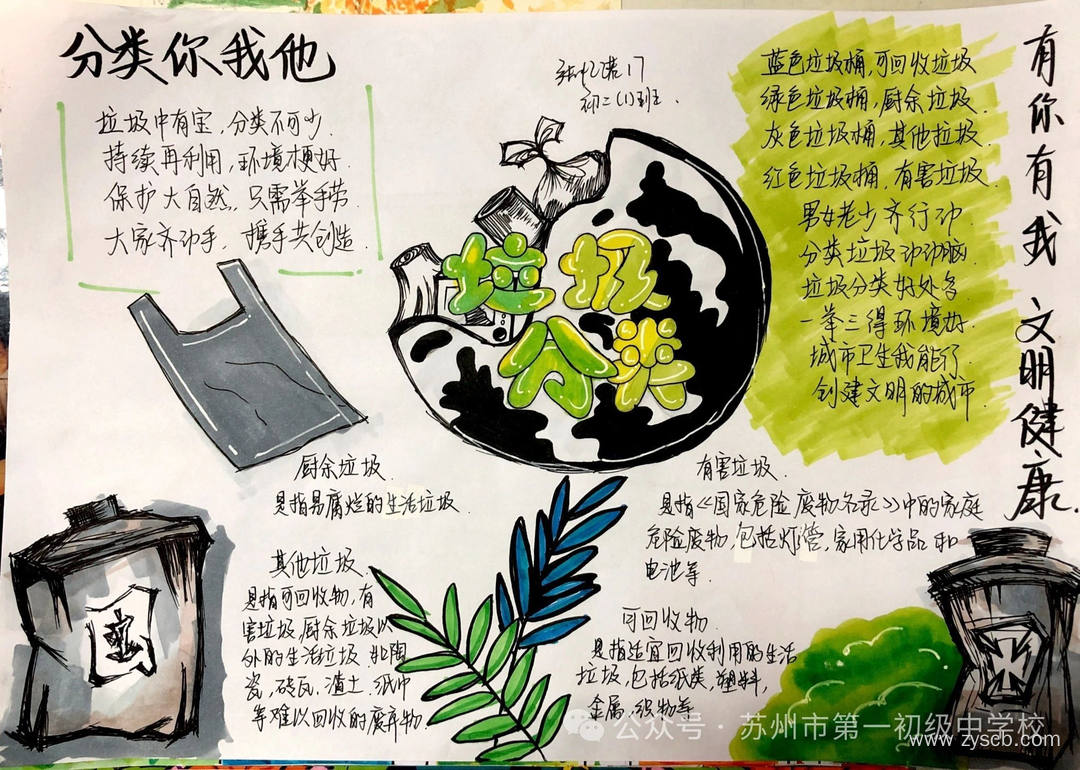 分类你我他
垃圾中有宝,分类不可少.
持续再利用,环境梗好.
保护大自然,只需举手劳.
大家齐动手,携手共创造.
初二(1)班.
垃圾
分类
蓝色垃圾桶,可回收垃圾
绿色垃圾桶,厨余垃圾.
灰色垃圾桶,其他垃圾.
红色垃圾桶,有害垃圾.
男女老少齐行动
分类垃圾动动脑.
垃圾分类好处多
一举三得环境好.
城市卫生我能行.
创建文明的城市.
有你有我 文明健康.
厨余垃圾.
是指易腐烂的生活垃圾.
有害垃圾.
是指《国家危险废物名录》中的家庭
危险废物,包括灯管,家用化学品和
电池等.
其他垃圾.
是指可回收物,有
害垃圾,厨余垃圾以
外的生活垃圾 如陶
瓷,砖瓦,渣土,纸巾
等难以回收的废弃物.
可回收物.
是指适宜回收利用的生活
垃圾,包括纸类,塑料,
金属,织物等
公众号·苏州市第一初级中学校
www.zyscb.com